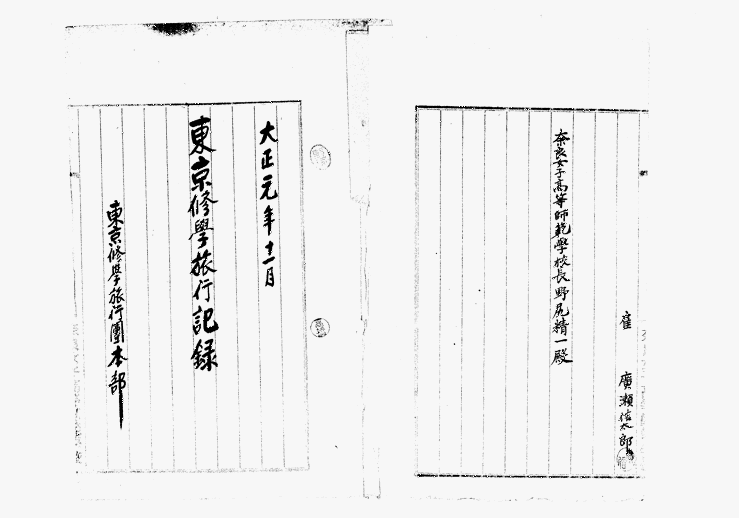 雇 廣瀬佐太郎
奈良女子高等師範學校長野尻精一殿
大正元年十一月
東京修學旅行記録
東京修學旅行團本部